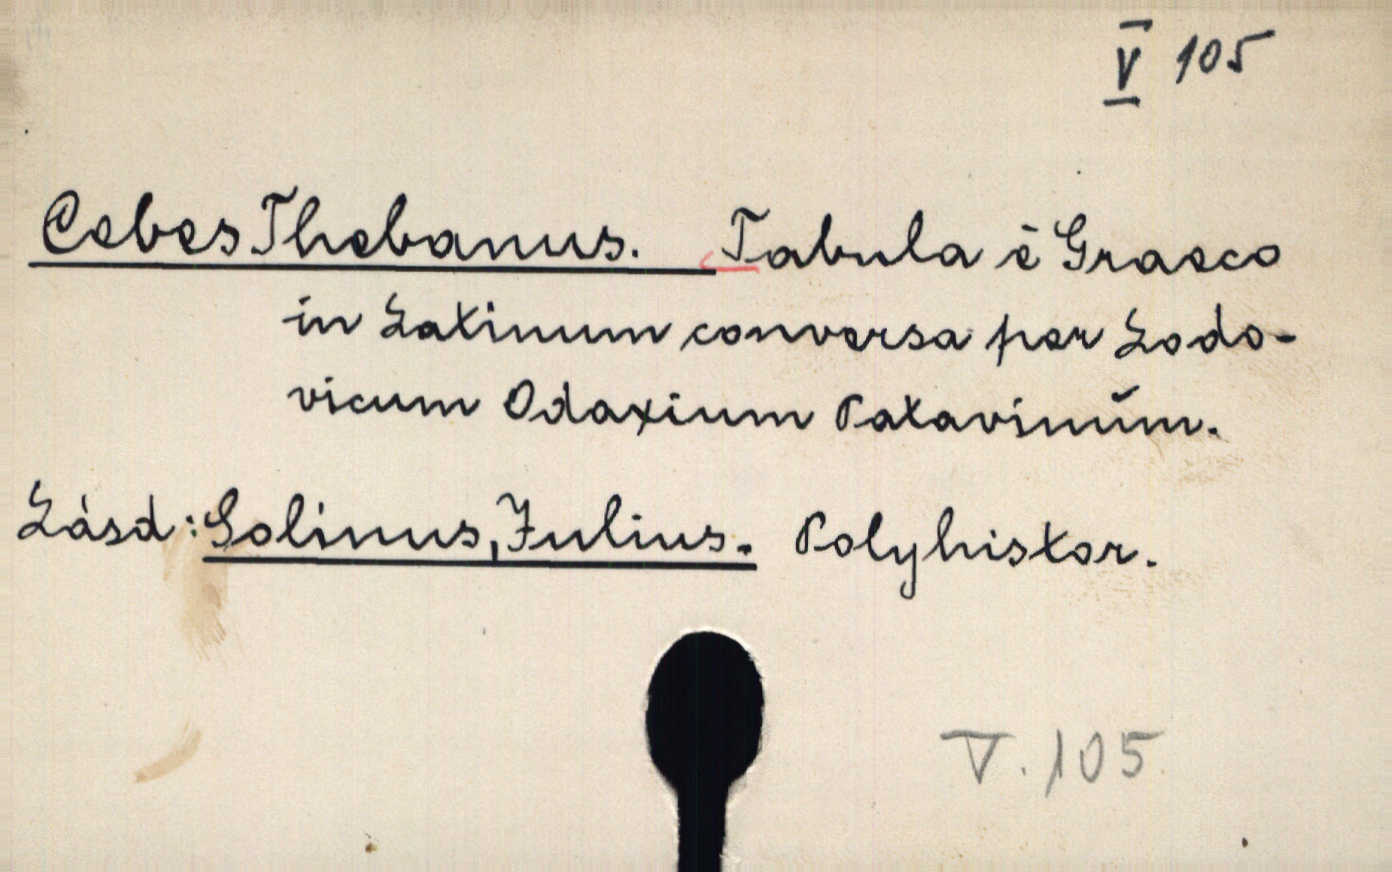 V 105
Cebes Thebanus. Tabula è Graeco
in Latinum conversa per Lodo-
vicum Odaxium Patavinúm.
Lásd: Solinus, Julius. Polyhistor.
V. 105